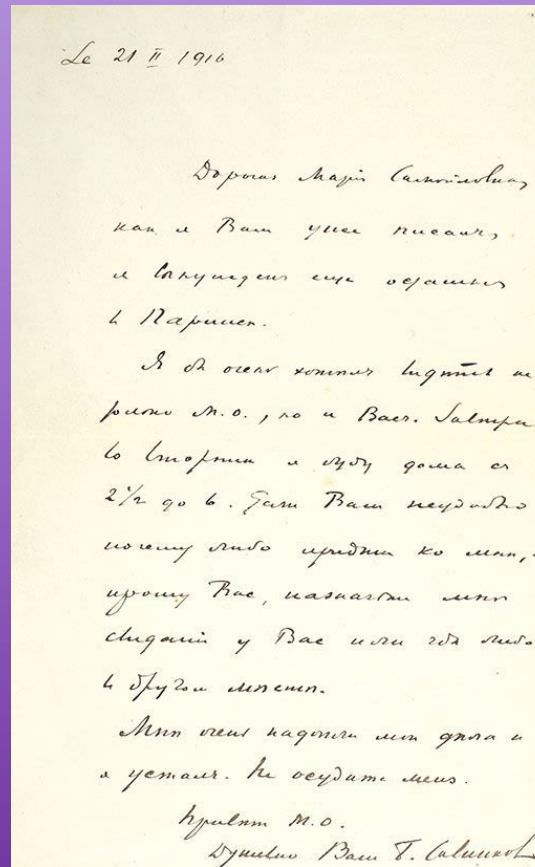 Le 21 II 1916
Дорогая Марія Самойловна,
как я Вам уже писалъ,
я вынужденъ еще остаться
в Париже.
Я бы очень хотелъ видѣть не
только М.О., но и Васъ. Завтра
во вторник я буду дома от
2 1/2 до 6. Если Вам неудобно
почему либо придти ко мнѣ,
прошу Вас, назначьте мнѣ
свиданіе у Вас или гдѣ либо
в другом мѣстѣ.
Мнѣ очень надоѣли мои дѣла и
я усталъ. Не осудите меня.
Привѣт М.О.
Душевно Ваш Б. Савинков